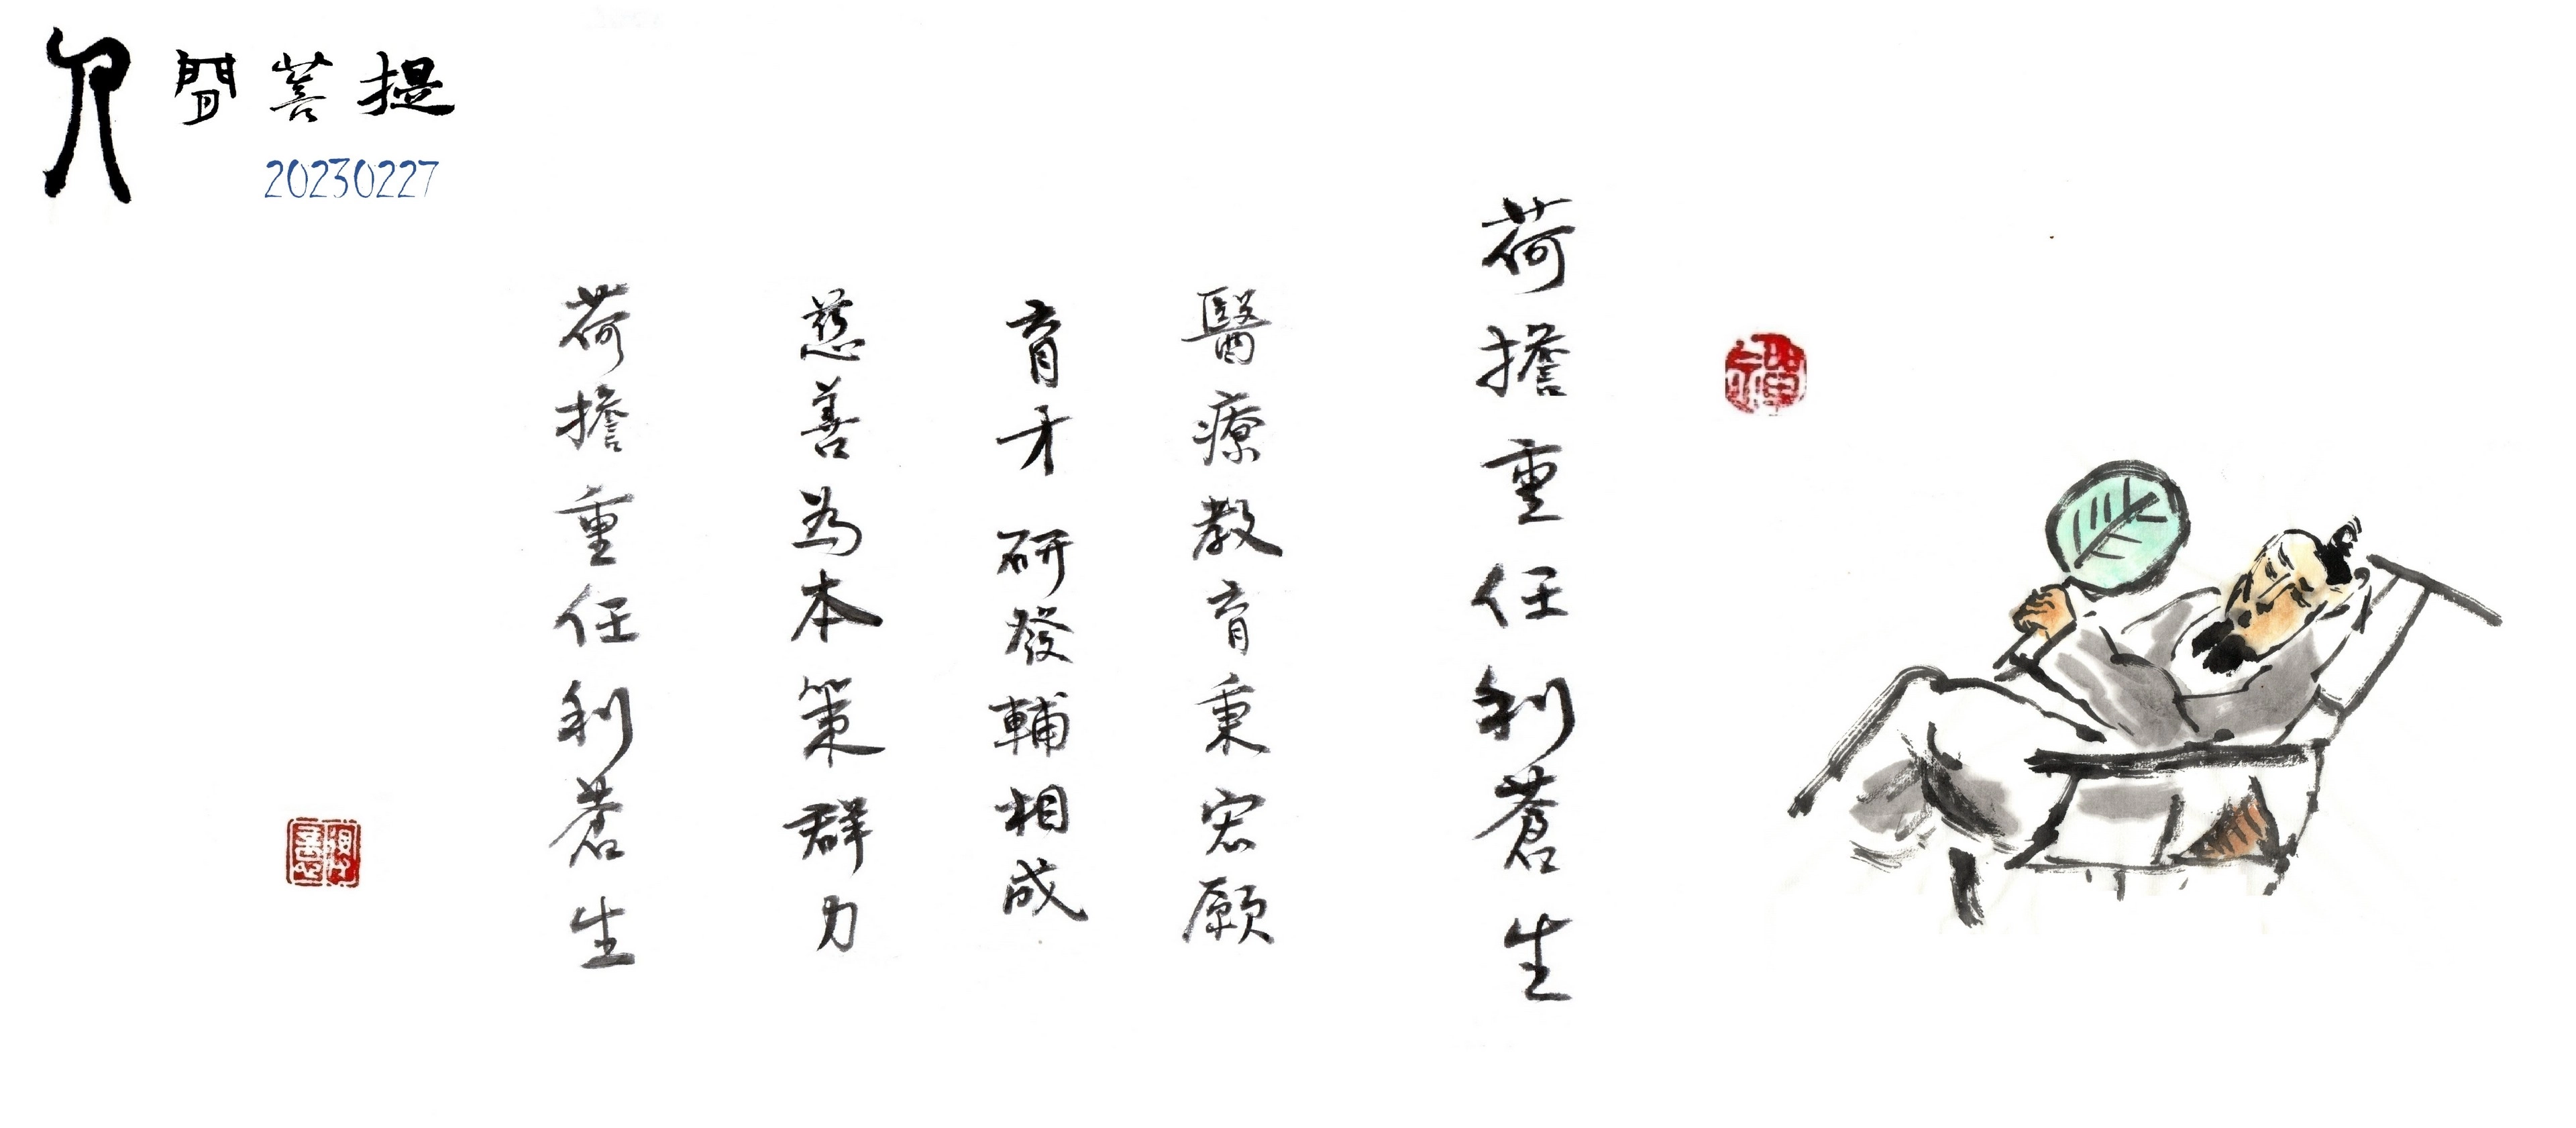 人間菩提
20230227
荷擔重任利蒼生
醫療教育秉宏願
育才研發輔相成
慈善為本策群力
荷擔重任利蒼生